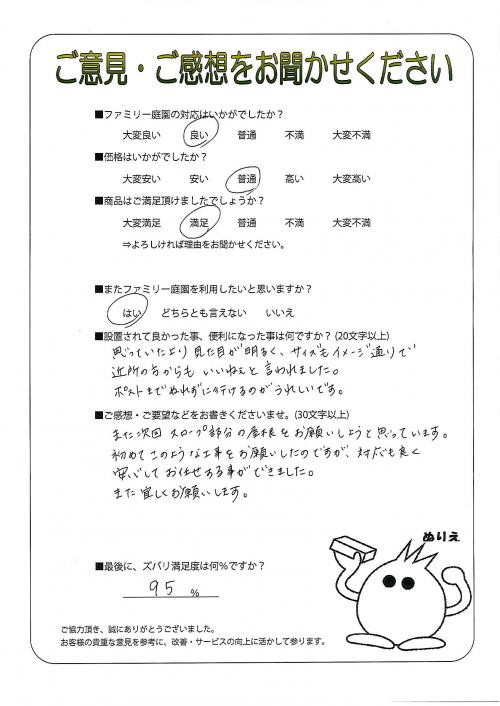 ご意見・ご感想をお聞かせください
■ファミリー庭園の対応はいかがでしたか？
大変良い 良い 普通 不満 大変不満
■価格はいかがでしたか？
大変安い 安い 普通 高い 大変高い
■商品はご満足頂けましたでしょうか？
大変満足 満足 普通 不満 大変不満
⇒よろしければ理由をお聞かせください。
■またファミリー庭園を利用したいと思いますか？
はい どちらとも言えない いいえ
■設置されて良かった事、便利になった事は何ですか？(20文字以上)
思っていたより 見た目が明るく、サイズもイメージ通りで
近所の方からも いいねぇと言われました。
ポストまでぬれずに行けるのがうれしいです。
■ご感想・ご要望などをお書きくださいませ。(30文字以上)
また次回 スロープ部分の屋根をお願いしようと思っています。
初めてこのような工事をお願いしたのですが、対応も良く
安心してお任せする事ができました。
また宜しくお願いします。
ぬりえ
■最後に、ズバリ満足度は何%ですか？
95 %
ご協力頂き、誠にありがとうございました。
お客様の貴重な意見を参考に、改善・サービスの向上に活かして参ります。